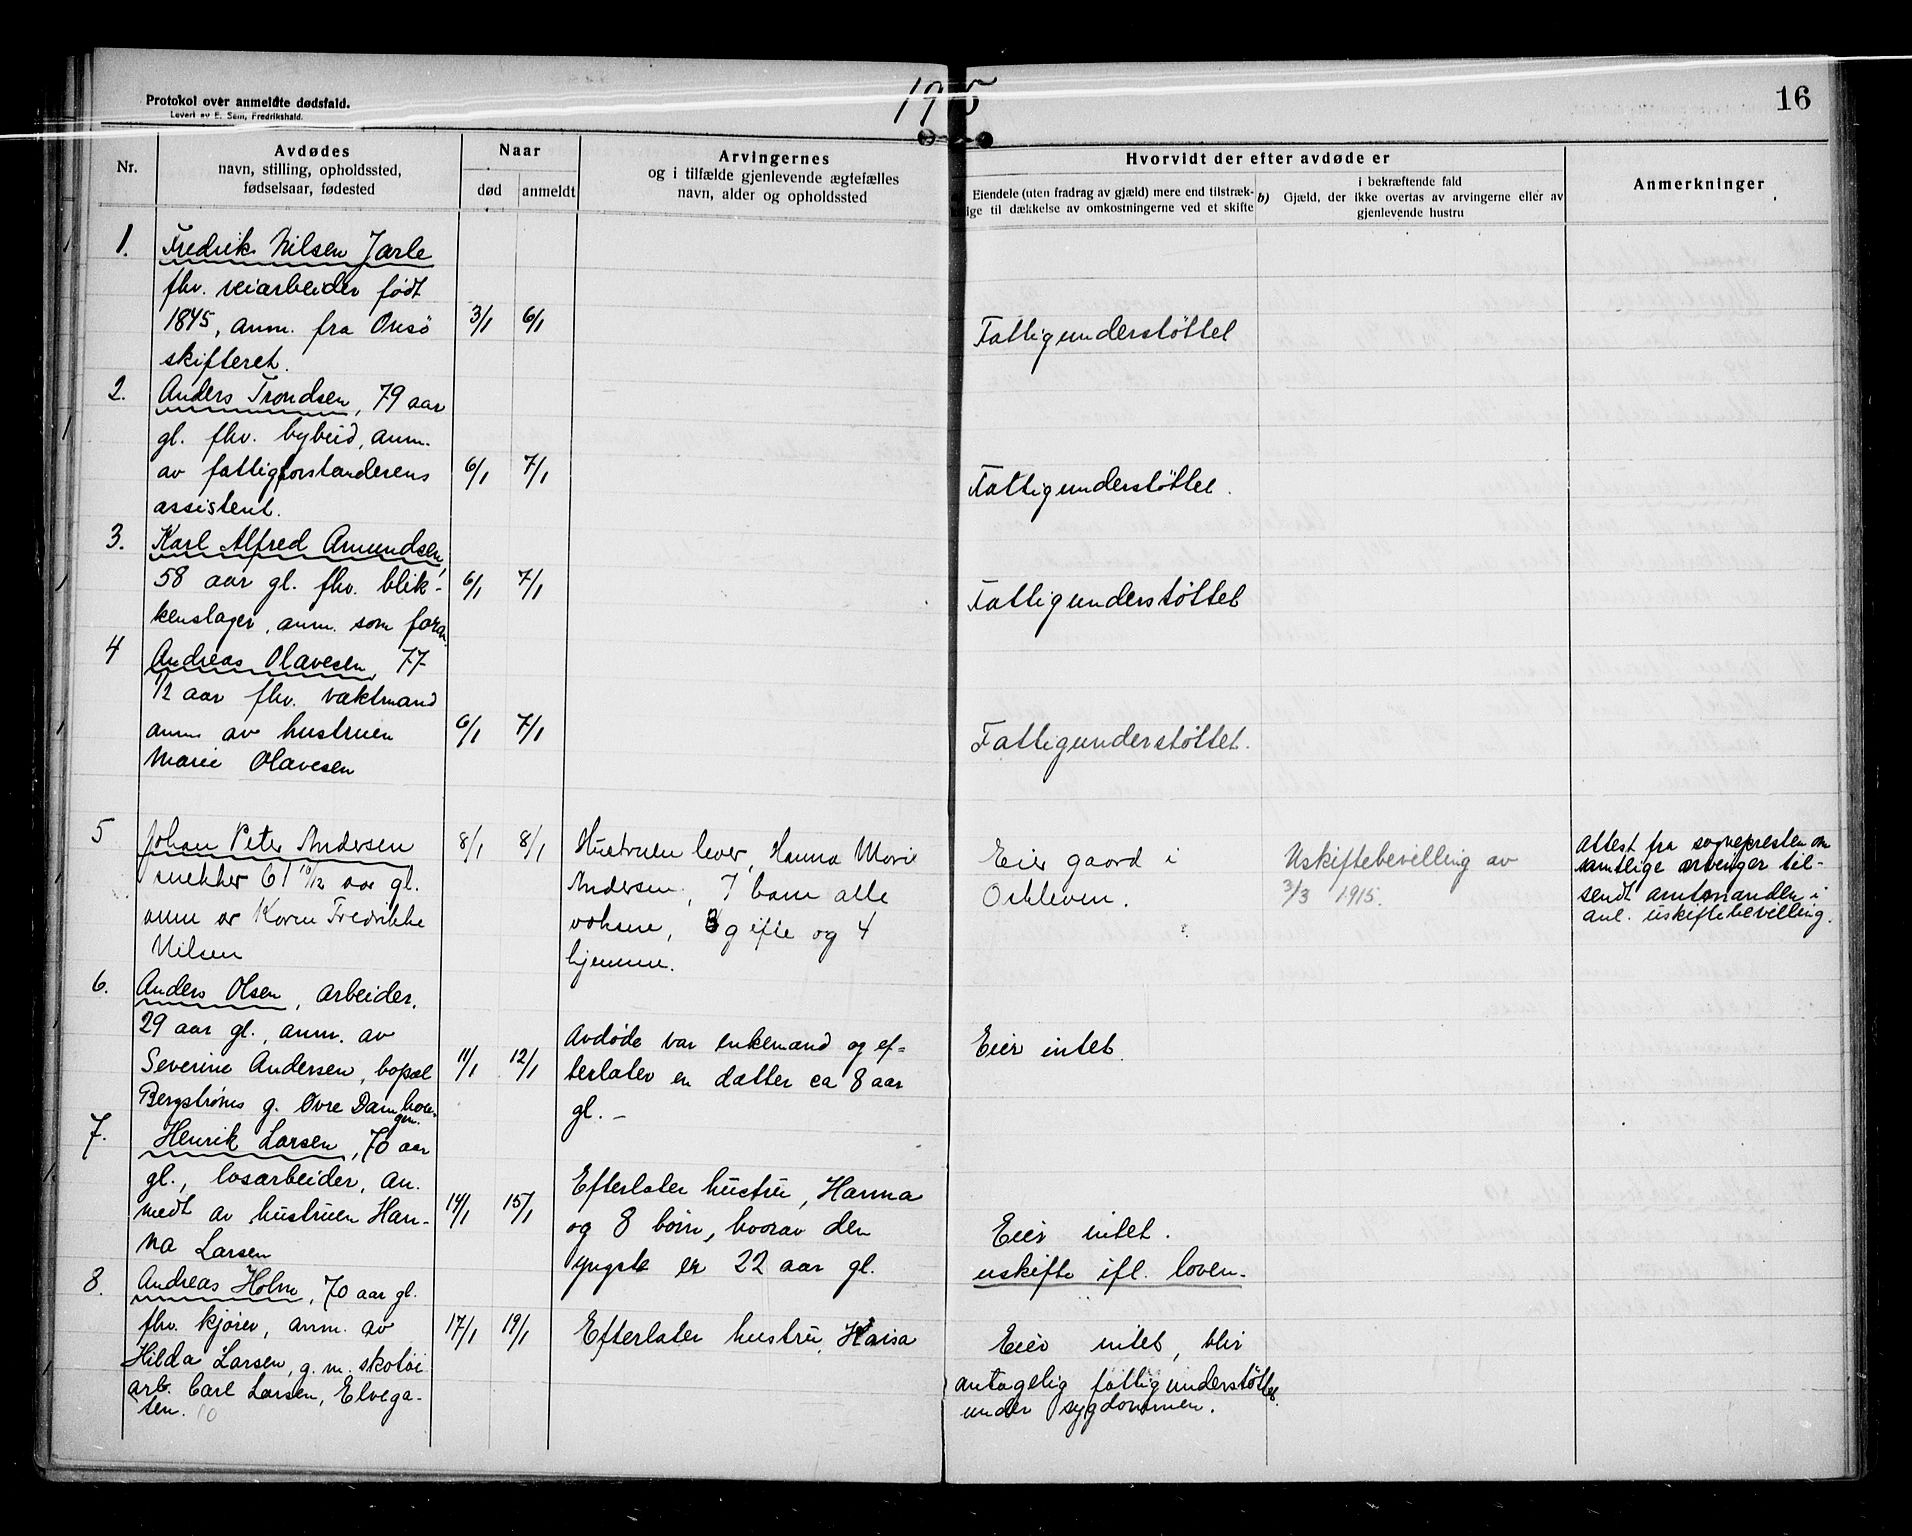 Protokol over anmeldte dødsfald.
Levert av E. Sem, Fredrikshald.
1915
16
Nr.
Avdødes
navn, stilling, opholdssted,
fødselsaar, fødested
Naar
død
anmeldt
Arvingernes
og i tilfælde gjenlevende ægtefælles
navn, alder og opholdssted
Hvorvidt der efter avdøde er
Eiendele (uten fradrag av gjæld) mere end tilstræk-
ige til dækkelse av omkostningerne ved et skifte
b)
i bekræftende fald
Gjæld, der ikke overtas av arvingerne eller av
gjenlevende hustru
Anmerkninger
1.
Fredrik Nilsen Jarle
fhv. veiarbeider født
1845, anm. fra Onsø
skifteret.
3/1
6/1
Fattigunderstøttet
2.
Anders Trondsen, 79 aar
gl. fhv. bybud, anm.
av fattigforstanderens
assistent.
6/1
7/1
Fattigunderstøttet.
3.
Karl Alfred Amundsen,
58 aar gl. fhv. blik-
kenslager, anm. som foran
6/1
7/1
Fattigunderstøttet
4
Andreas Olavesen, 77
1/2 aar fhv. vaktmand
anm av hustruen
Marie Olavesen
6/1
7/1
Fattigunderstøttet.
5
Johan Peter Andersen
snekker 61 10/12 aar gl.
anm av Karen Fredrikke
Nilsen
8/1
8/1
Hustruen lever, Hanna Marie
Andersen, 7 barn alle
voksne, 3 gifte og 4
hjemme.
Eier gaard i
Oskleven.
Uskiftebevilling av
3/3 1915.
Attest fra sognepresten om
samtlige arvinger til-
sendt amtmanden i
anl. uskiftebevilling.
6.
Anders Olsen, arbeider,
29 aar gl., anm. av
Severine Andersen, bopæl
Bergstrøms g. Øvre Damhau-
gen.
11/1
12/1
Avdøde var enkemand og ef-
terlater en datter ca 8 aar
gl. –
Eier intet.
7.
Henrik Larsen, 70 aar
gl., løsarbeider, an.
meldt av hustruen Han-
na Larsen
14/1
15/1
Efterlater hustru, Hanna
og 8 børn, hvorav den
yngste er 22 aar gl.
Eier intet.
uskifte ifl. loven.
8.
Andreas Holm, 70 aar gl.
fhv. kjører, anm. av
Hilda Larsen, g. m. skotøi
arb. Carl Larsen, Elvega-
ten. 10
17/1
19/1
Efterlater hustru, Kaisa
Eier intet, blir
antagelig fattigunderstøttet
under sygdommen.